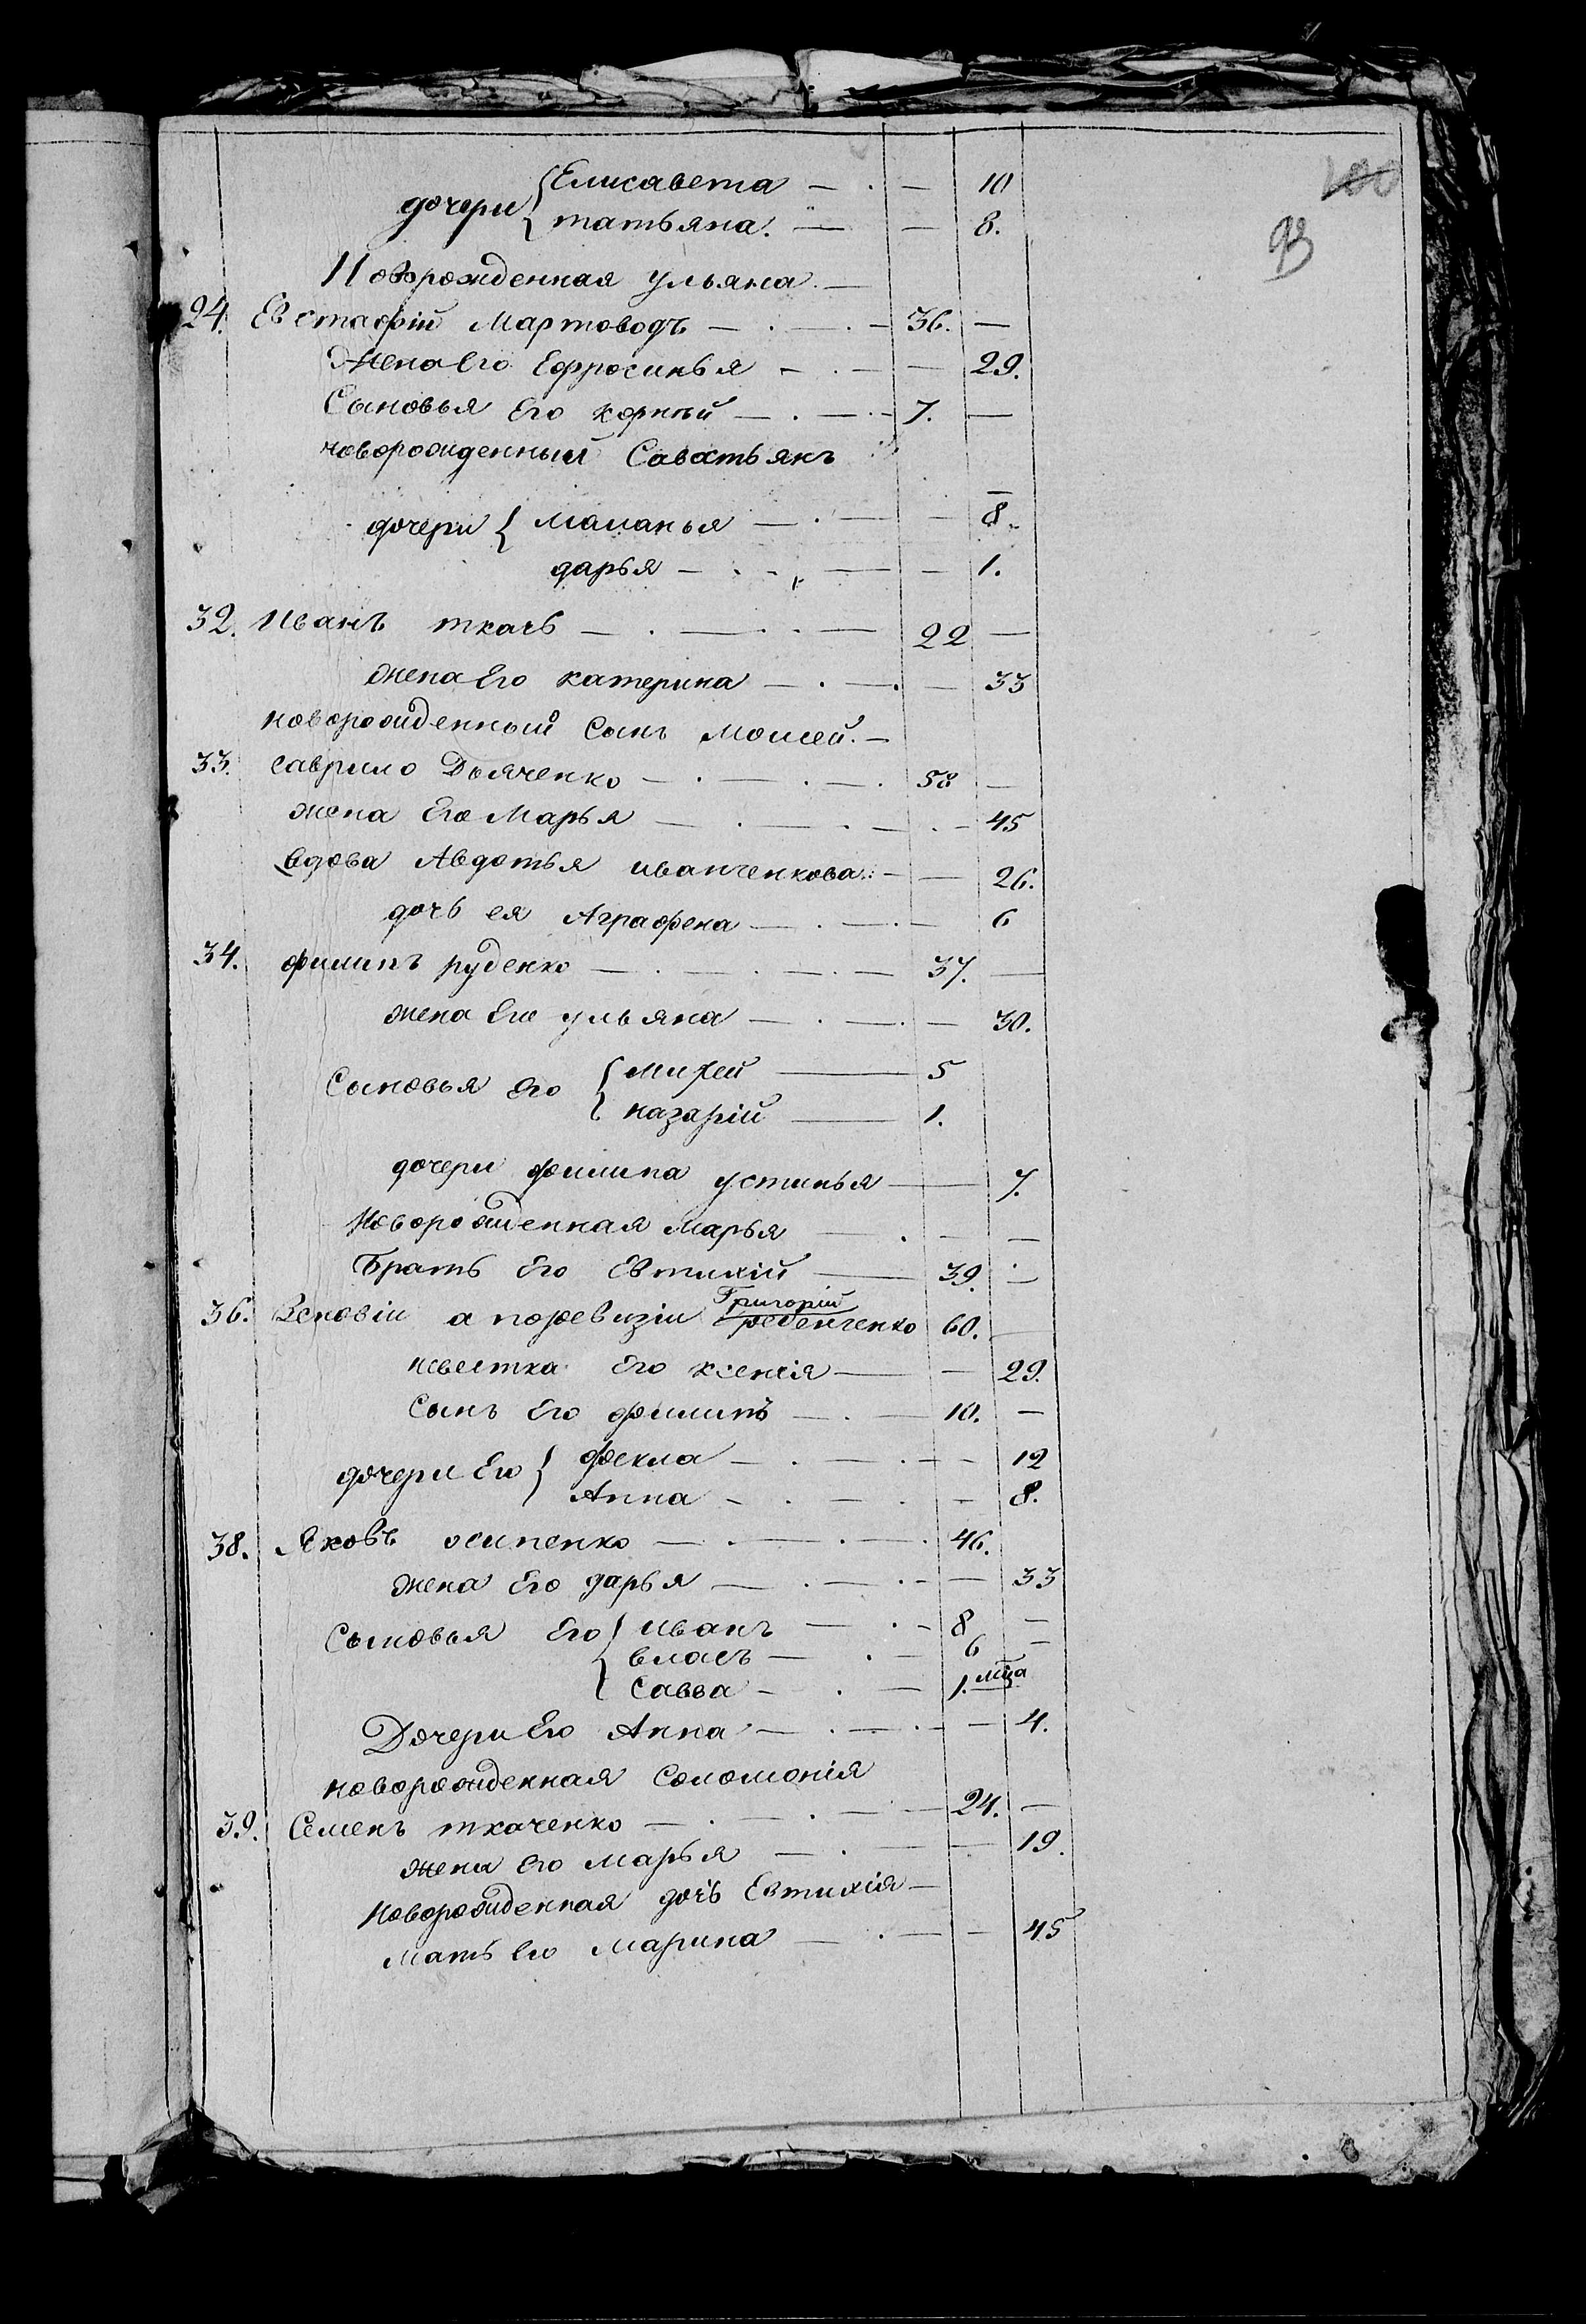 100
93
дочери { Елисавета — . — 10
татьяна. — — 8.
Новорожденная ульяна. —
24. Евстафій Мартоводъ — . — . — 36. —
Жена Его Ефросинья — . — — 29.
Сыновья Его корнѣй — . — . — 7. —
новорожденный Савостьянъ
дочери { маланья — . — — 8.
дарья — . — — — 1.
32. Иванъ ткачь — . — . . — 22 —
жена Его катерина — . — . — 33
новорожденный Сынъ моисей. —
33. гаврило Дьяченко — . — . — . 58 —
жена Его Марья — . — . — . — 45
вдова Авдотья иванченкова. — — 26.
дочь ея Аграфена — . — . — 6
34. филипъ руденко — . — . — . — 37. —
жена Его ульяна — . — . — 30.
Сыновья Его { михей — 5
назарій — 1.
дочери филипа устинья — 7.
Новорожденная марья — . — —
Братъ Его Евтихій — 39. —
Григорій
36. Зеновій а поревизіи Гребенченко 60. —
невестка Его ксенія — — 29.
Сынъ Его филипъ — . — 10. —
дочери Его { фекла — . — . — — 12
Анна — . — . — 8.
38. Яковъ осипенко — . — . — . 46.
жена Его дарья — . — . — — 33
Сыновья Его { иванъ — . — 8 —
власъ — . — 6 —
Савва — . — 1. мца
Дочери Его Анна — . — . — — 4.
новорожденная Соломонія
39. Семенъ ткаченко — . — . — — 24. —
жена Его марья — . — — 19.
Новорожденная дочь Евтихія —
мать Его марина — . — — 45